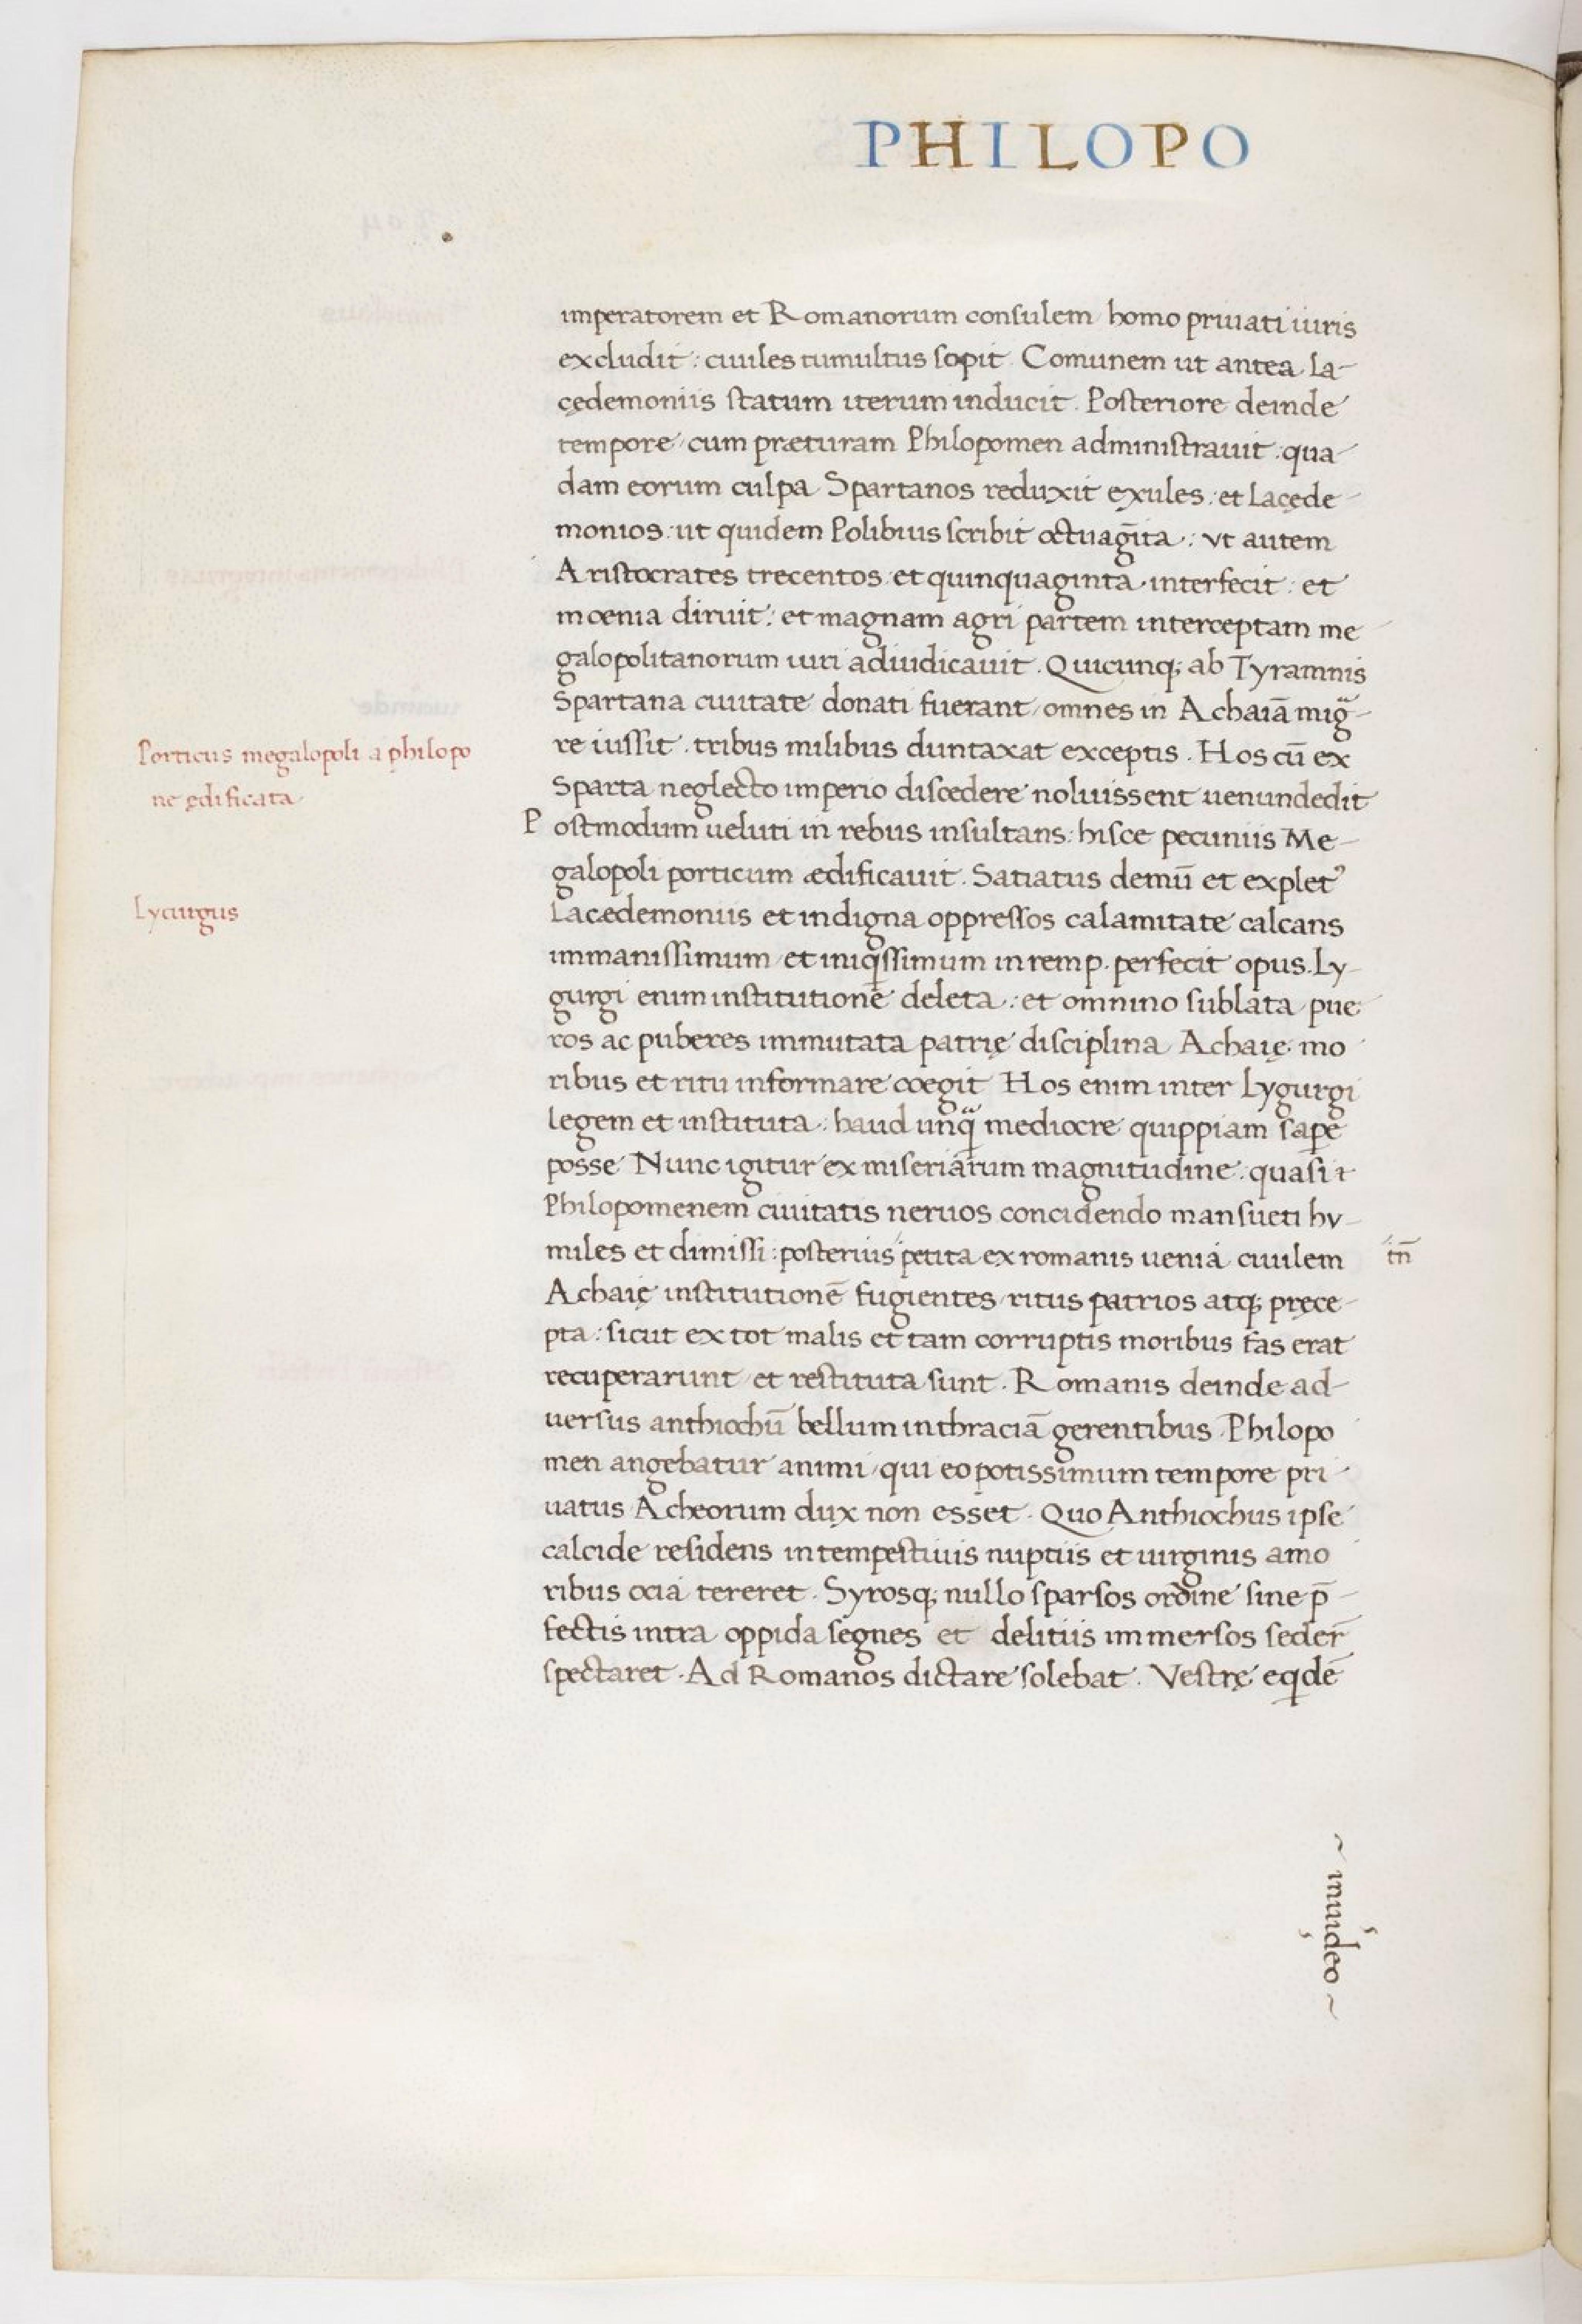 PHILOPO
imperatorem et Romanorum consulem homo priuati iuris
excludit : ciuiles tumultus sopit . Comunem ut antea La-
cędemoniis statum iterum inducit . Posteriore deinde
tempore / cum præturam Philopomen administrauit : qua-
dam eorum culpa Spartanos reduxit exules : et Lacęde-
monios : ut quidem Polibius scribit octuagīta : vt autem
Aristocrates trecentos et quinquaginta interfecit : et
moenia diruit : et magnam agri partem interceptam me-
galopolitanorum iuri adiudicauit . Quicunq; ab Tyramnis
Spartana ciuitate donati fuerant / omnes in Achaiā migͣ-
re iussit . tribus milibus duntaxat exceptis . Hos cū ex
Porticus megalopoli a philopo
ne ędificata
Sparta neglecto imperio discedere noluissent uenundedit
Postmodum ueluti in rebus insultans : hisce pecuniis Me-
galopoli porticum ædificauit . Satiatus demū et explet⁹
Lycurgus
Lacedemoniis et indigna oppressos calamitate calcans
immanissimum / et iniqssimum in rem p. perfecit opus . Ly-
gurgi enim institutionē deleta : et omnino sublata pue-
ros ac puberes immutata patrię disciplina Achaię mo-
ribus et ritu informare coegit Hos enim inter Lygurgi
legem et instituta : haud unqͣ mediocre quippiam sapē
posse Nunc igitur ex miseriarum magnitudine : quasi ⁊
Philopomenem ciuitatis neruos concidendo mansueti hv-
miles et dimissi : posterius petita ex romanis uenia ciuilem
tn̄
Achaię institutionē fugientes / ritus patrios atq; pręce-
pta : sicut ex tot malis et tam corruptis moribus fas erat
recuperarunt / et restituta sunt . Romanis deinde ad-
uersus anthiochū bellum in thraciā gerentibus Philopo
men angebatur animi / qui eo potissimum tempore pri-
uatus Acheorum dux non esset . Quo Anthiochus ipse
calcide residens intempestiuis nuptiis et uirginis amo
ribus ocia tereret . Syrosq; nullo sparsos ordine sine p̄-
fectis intra oppida segnes et delitiis immersos seder̄
spectaret . Ad Romanos dictare solebat . Vestrę eqdē
~ inuideo ~